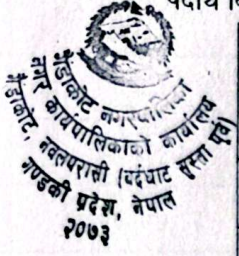 पदार्थ
गैंडाकोट नगरपालिका
नगर कार्यपालिकाको कार्यालय
गैंडाकोट, नवलपरासी (बर्दघाट सुस्ता पूर्व)
गण्डकी प्रदेश, नेपाल
२०७३